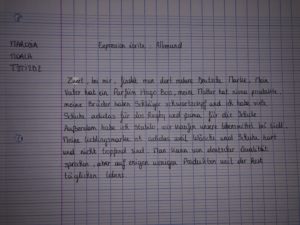 Expression écrite : Allemand
MAROSA
T STI2D2
Zuerst, bei mir, findet man dort mehrere Deutsche Marke. Mein
Vater hat ein Parfüm Hugo Boss, meine Mutter hat nivea produkte,
meine Brüder haben Schläger schwarzkopf und ich habe viele
Schuhe adidas für das Rugby und puma für die Schule
Außerdem habe ich Stabilo, wir kaufen unsere lebensmittel bei Lidl.
Meine lieblingsmarke ist adidas weil Wäsche und Schuhe hart
und nicht sind. Man kann von deutscher Qualität
sprechen, aber auf einigen wenigen Produkten und der Rest
täglichen lebens.